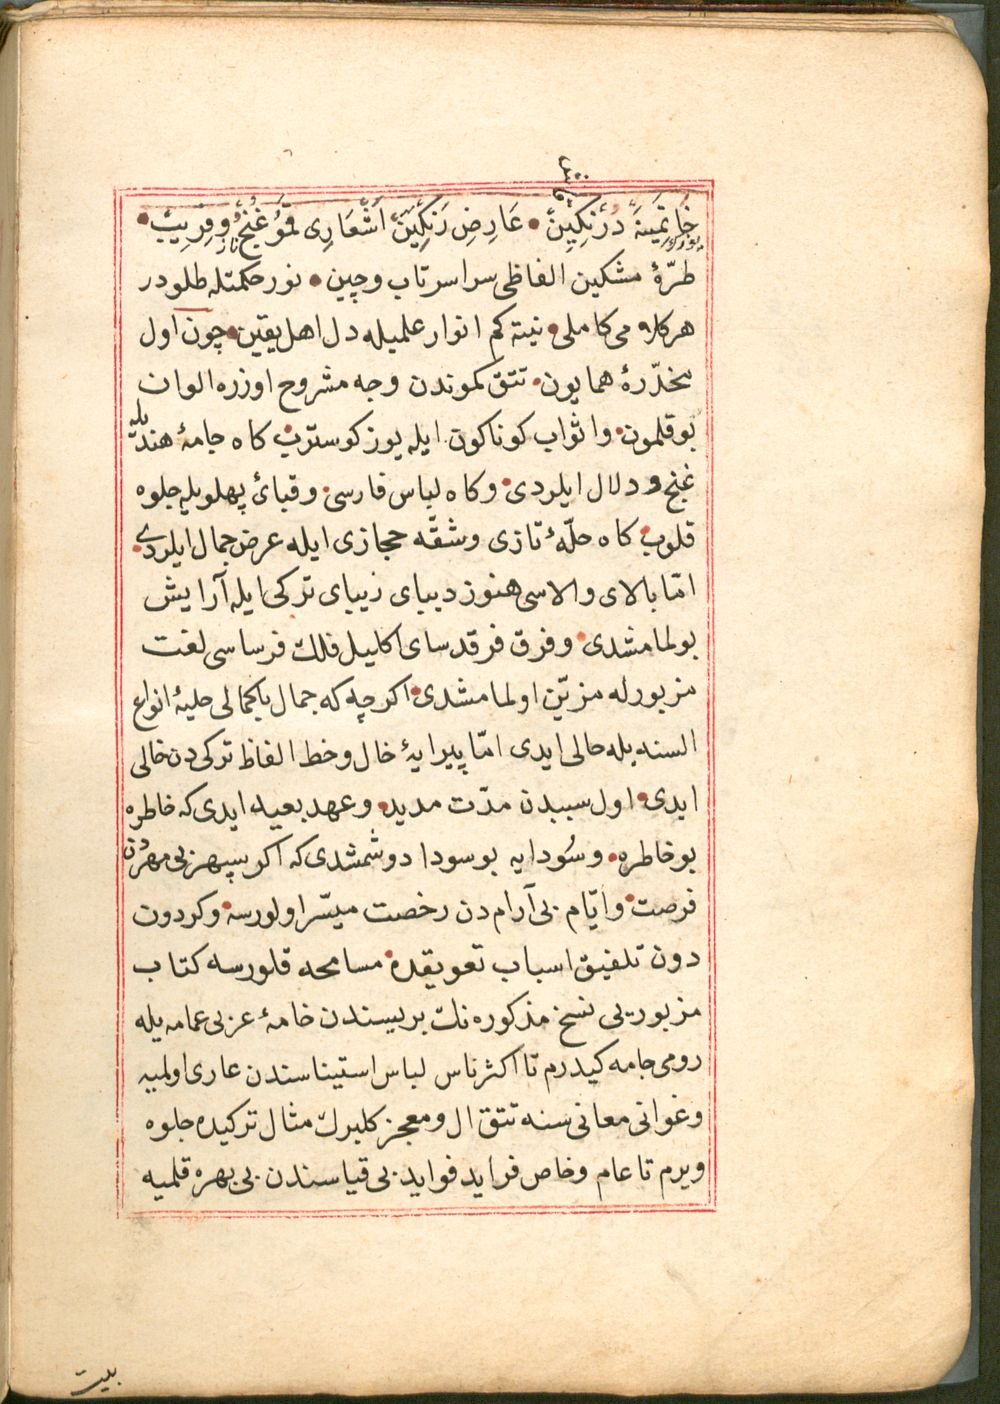 عَارِضِ رَنكِينْ اَشْعَارِى قَمُو غُنْجُ و فِرِيبْ
طرّهٔ مشكين الفاظى سراسر تاب و چين نور حكمتله طلودر
هر كلامى كاملى نيته كم انوار علميله دل اهل يقين چون اول
مخدّرهٔ همايون تتق كموندن وجه مشروح اوزره الوان
بوقلمون واثواب كوناكون ايله يوز كوستروب كاه جامهٔ هنديله
غنج و دلال ايلردى وكاه لباس فارسى وقباىٔ پهلويله جلوه
قلوب كاه حلّهٔ تازى وشقّه حجازى ايله عرض جمال ايلردى
امّا بالاى والاسى هنوز ديباى زيباى تركى ايله آرايش
بولمامشدى وفرق فرقدساى اكليل فلك فرساسى لغت
مزبورله مزيّن اولمامشدى اكرچه كه جمال باكمالى حليهٔ انواع
السنه بله حالى ايدى امّا پيرايهٔ خال وخط الفاظ تركى دن خالى
ايدى اول سببدن مدّت مديد وعهد بعيد ايدى كه خاطره
بو خاطره وسُودايه بو سودا دوشمشدى كه اكر سپهر بى مهردن
فرصت وايّام بى آرام دن رخصت ميسّر اولورسه وكردون
دون تلفيق اسباب تعويقده مسامحه قلورسه كتاب
مزبوريى نسخ مذكوره نك بريسندن خامهٔ عربى عمامه يله
رومى جامه كيدرم تا اكثر ناس لباس استيناسندن عارى اولميه
وغوانى معانى سنه تتق ال ومعجز كلبرك مثال تركيده جلوه
ويرم تا عام وخاص فرايد فوايد بى قياسندن بى بهره قلميه
بليت